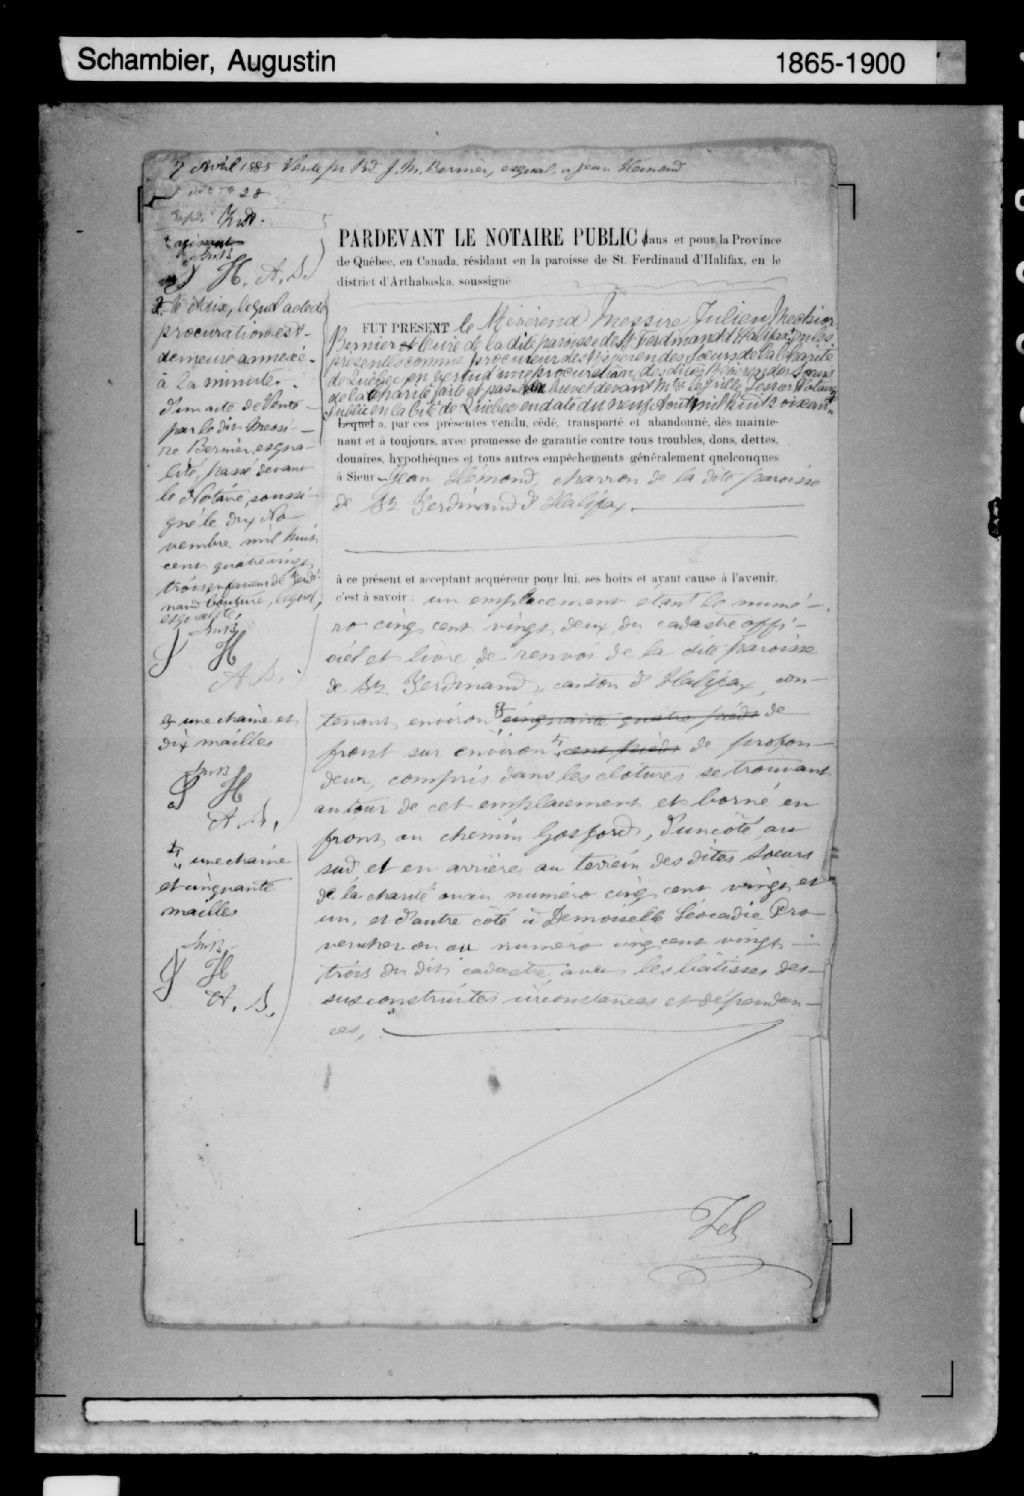 Schambier, Augustin
1865-1900
7 Avril 1885 Vente par Rd J. M. Bernier, esqual. à Jean Hemond
28
agissant
J.M.B
J H. A. S.
PARDEVANT LE NOTAIRE PUBLIC dans et pour la Province
de Québec, en Canada, résidant en la paroisse de St. Ferdinand d'Halifax, en le
district d'Arthabaska, soussigné.
FUT PRESENT le Révérend Messire Julien Melchior
Bernier et Curé de la dite paroisse de St Ferdinand d'Halifax, en les
présentes comme procureur des Révérendes Soeurs de la Charité
de Québec en vertu d'une procuration des dites Révérendes Soeurs
de la Charité faite et passée en brevet devant Mtre Notaire
Public en la Cité de Québec en date du neuf Aout mil huit soixant
Lequel a, par ces présentes vendu, cédé, transporté et abandonné, dès mainte-
nant et à toujours, avec promesse de garantie contre tous troubles, dons, dettes,
douaires, hypothèques et tous autres empêchements généralement quelconques
à Sieur Jean Hémond, charron de la dite paroisse
de St Ferdinand d'Halifax.
à ce présent et acceptant acquéreur pour lui, ses hoirs et ayant cause à l'avenir,
c'est à savoir : un emplacement étant le numé-
ro cinq cent vingt deux du cadastre offi-
ciel et livre de renvoi de la dite paroisse
de St Ferdinand, canton d'Halifax, con-
tenant environ cinquante quatre pieds de
front sur environ cent pieds de profon-
deur, compris dans les clôtures se trouvant
autour de cet emplacement et borné en
front au chemin Gosford, d'un côté au
sud et en arrière au terrein des dites Soeurs
de la charité ou au numéro cinq cent vingt et
un, et d'autre côté à Demoiselle Léocadie Pro
vencher ou au numéro cinq cent vingt
trois du dit cadastre, avec les bâtisses des-
sus construites circonstances et dépendan-
ces,
x te dix, lequel acte de
procuration est
demeuré annexé
à la minute
d'un acte de Vente
par le dit Messi-
re Bernier, esqua-
lité, passé devant
le Notaire soussi-
gné le dix No-
vembre mil huit
cent quatrevingt
trois en faveur de Ferdi-
nand Couture, lequel,
esqualité,
J.M.B
J H
A. S.
& une chaine et
dix mailles
J.M.B
J H
A. S.
une chaine
et cinquante
mailles
J.M.B
J H
A. S.